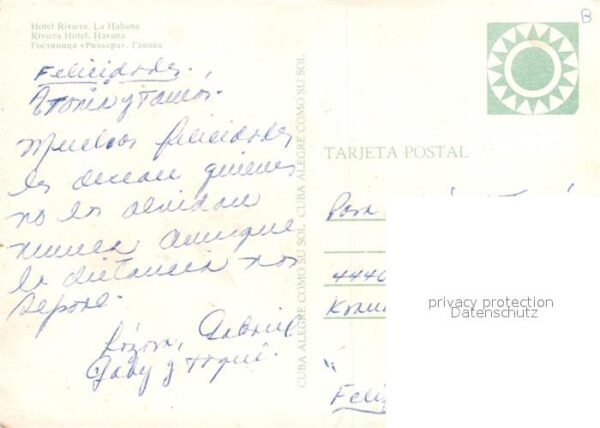 Hotel Riviera. La Habana
Riviera Hotel. Havana
Гостиница «Ривьера». Гавана
B
Felicidades.
y Tomás.
Muchas felicidades
les desean quienes
no los olvidan
nunca aunque
la distancia nos
separe.
Gabriel
Gaby y
CUBA ALEGRE COMO SU SOL. CUBA ALEGRE COMO SU SOL. CUBA ALEGRE COMO SU SOL.
TARJETA POSTAL
Para
4440
privacy protection
Datenschutz
Feliz